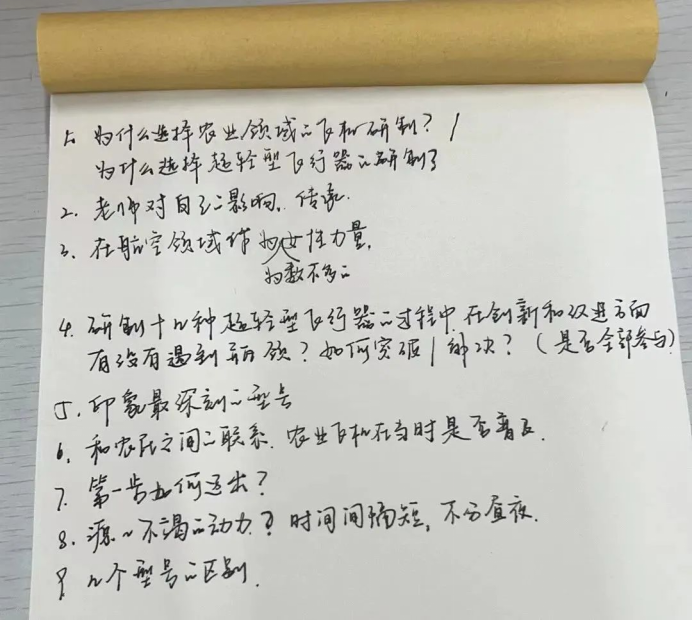 1. 为什么选择农业领域的飞机研制？/
为什么选择超轻型飞行器的研制？
2. 老师对自己的影响、传承.
3. 在航空领域作为女性力量,
为数不多的
4. 研制十几种超轻型飞行器的过程中,在创新和改进方面
有没有遇到瓶颈？如何突破/解决？（是否全部参与）
5. 印象最深刻的型号
6. 和农民之间的联系. 农业飞机在当时是否普及.
7. 第一步如何迈出？
8. 源~不竭的动力？时间间隔短, 不分昼夜.
9 几个型号的区别.